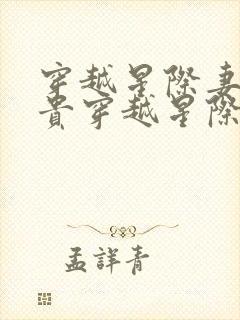 穿越星際妻
貴穿越星際
孟詳青